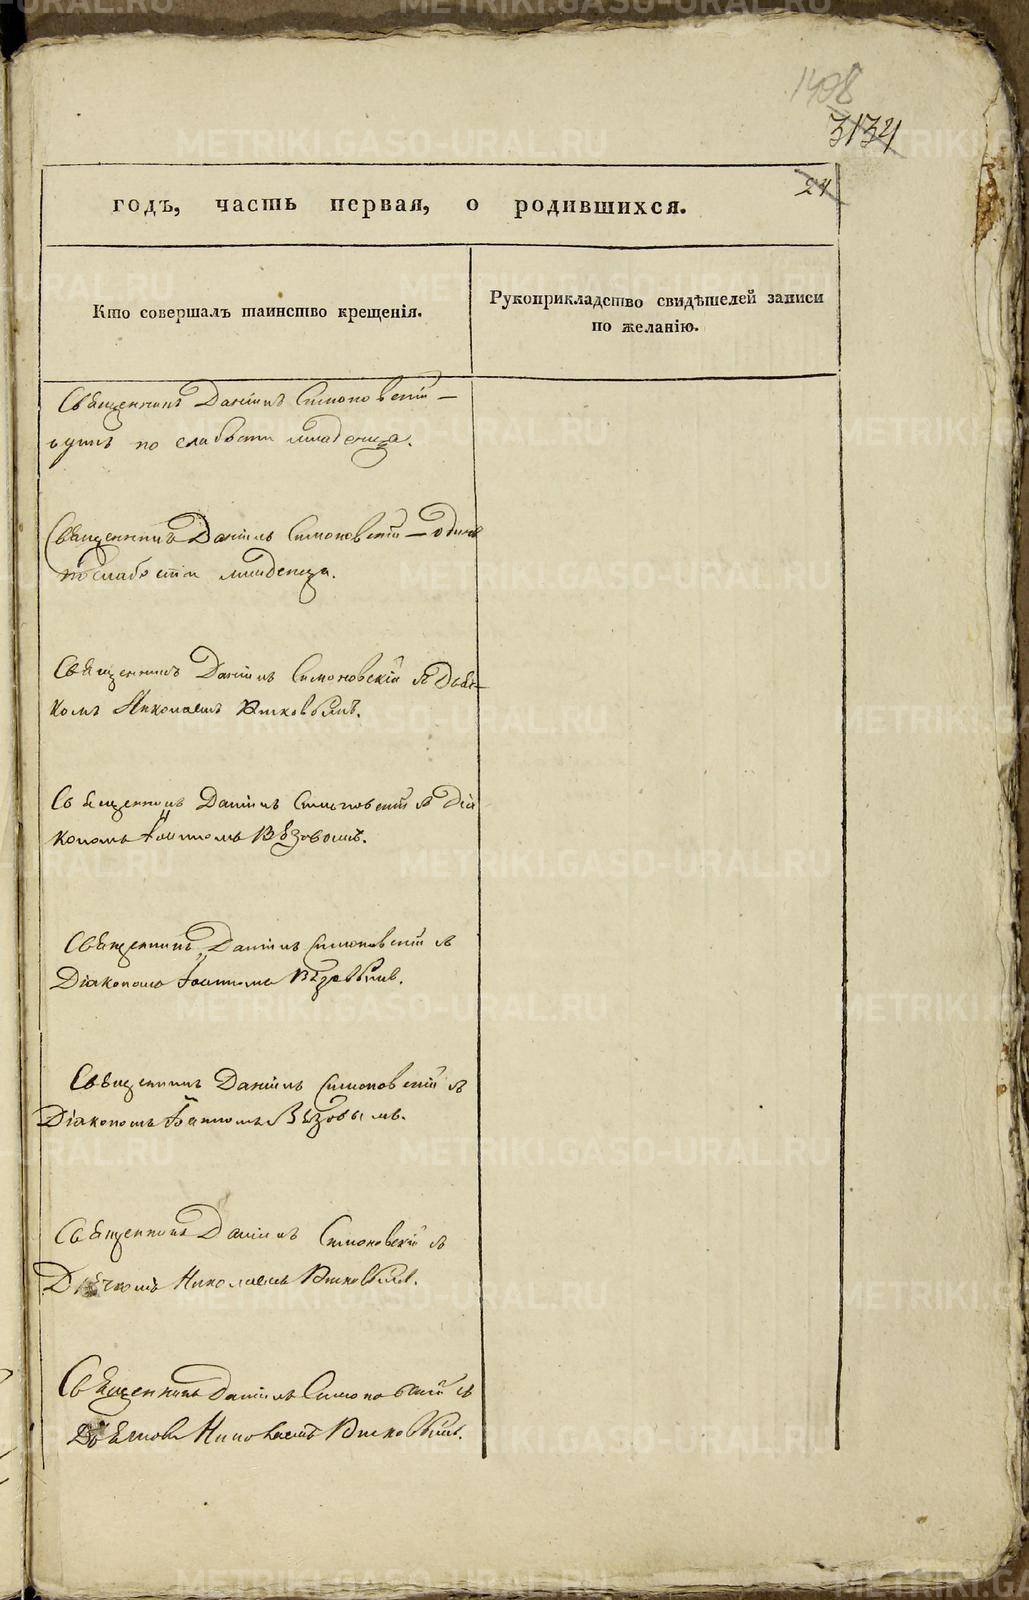 1408
3134
24
годъ, часть первая, о родившихся.
Кто совершалъ таинство крещенія.
Рукоприкладство свидѣтелей записи
по желанію.
Священникъ Даніилъ Симоновскій —
одинъ по слабости младенца.
Священникъ Даніилъ Симоновскій — одинъ
по слабости младенца.
Священникъ Даніилъ Симоновскій съ Дьяч-
комъ Николаемъ
Священникъ Даніилъ Симоновскій съ Діа
кономъ Іоанномъ Вѣзовымъ.
Священникъ Даніилъ Симоновскій съ
Діакономъ Іоанномъ Вѣзовымъ.
Священникъ Даніилъ Симоновскій съ
Діакономъ Іоанномъ Вѣзовымъ.
Священникъ Даніилъ Симоновскій съ
Дьячкомъ Николаемъ
Священникъ Даніилъ Симоновскій съ
Николаемъ
METRIKI.GASO-URAL.RU